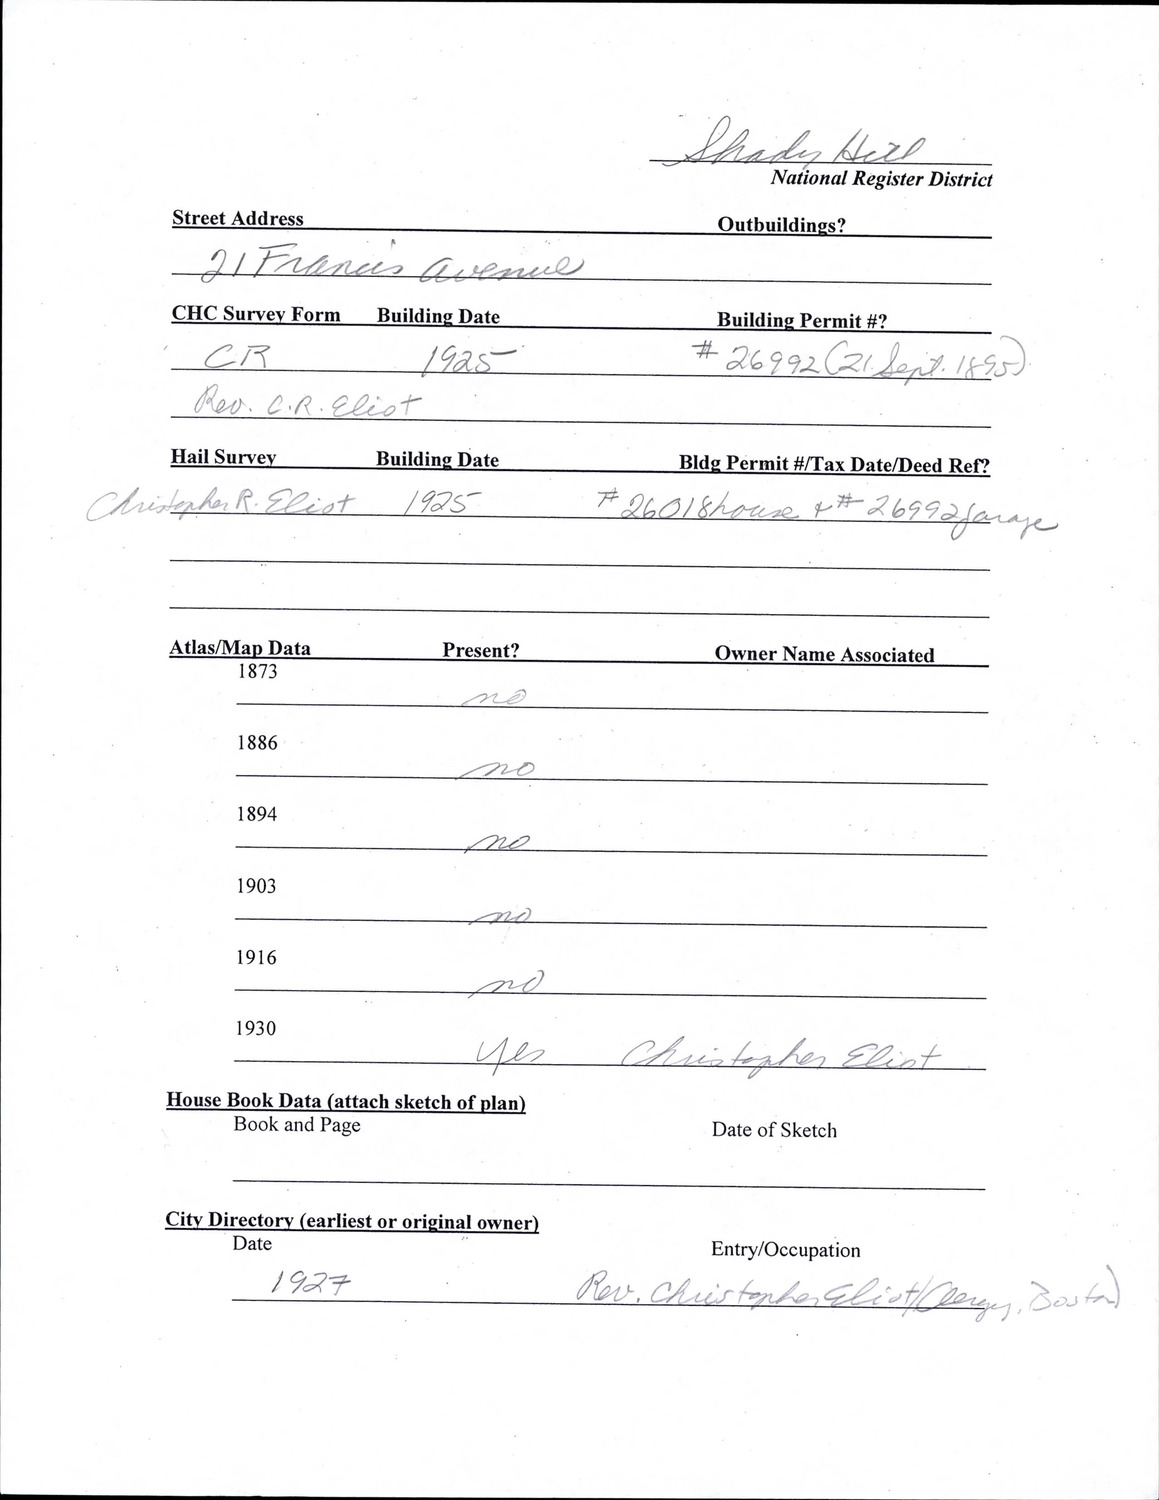 Shady Hill
National Register District
Street Address Outbuildings?
21 Francis Avenue
CHC Survey Form Building Date Building Permit #?
CR 1925 # 26992 (21 Sept. 1895)
Rev. C.R. Eliot
Hail Survey Building Date Bldg Permit #/Tax Date/Deed Ref?
Christopher R. Eliot 1925 # 26018 house + # 26992 garage
Atlas/Map Data Present? Owner Name Associated
1873
no
1886
no
1894
no
1903
no
1916
no
1930
yes Christopher Eliot
House Book Data (attach sketch of plan)
Book and Page Date of Sketch
City Directory (earliest or original owner)
Date Entry/Occupation
1927 Rev. Christopher Eliot/(Clergy, Boston)